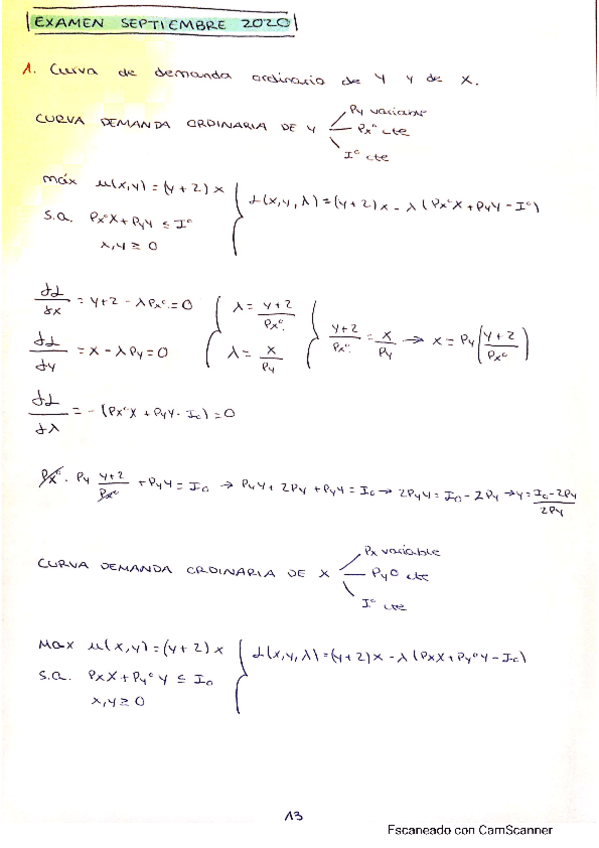 EXAMEN SEPTIEMBRE 2020
1. Curva de demanda ordinaria de Y y de X.
CURVA DEMANDA ORDINARIA DE Y
Py variable
Px° cte
I° cte
máx u(x,y) = (y+2)x
L(x,y,λ) = (y+2)x - λ(Px°X + PyY - I°)
s.a. Px°X + PyY ≤ I°
x,y ≥ 0
∂L/∂x = y+2 - λPx° = 0
λ = (y+2)/Px°
∂L/∂y = x - λPy = 0
λ = x/Py
(y+2)/Px° = x/Py → x = Py((y+2)/Px°)
∂L/∂λ = -(Px°X + PyY - I0) = 0
Px° · Py (y+2)/Px° + PyY = I0 → PyY + 2Py + PyY = I0 → 2PyY = I0 - 2Py → y = (I0 - 2Py)/2Py
CURVA DEMANDA ORDINARIA DE X
Px variable
Py° cte
I° cte
Max u(x,y) = (y+2)x
L(x,y,λ) = (y+2)x - λ(PxX + Py°Y - I0)
s.a. PxX + Py°Y ≤ I0
x,y ≥ 0
13
Escaneado con CamScanner